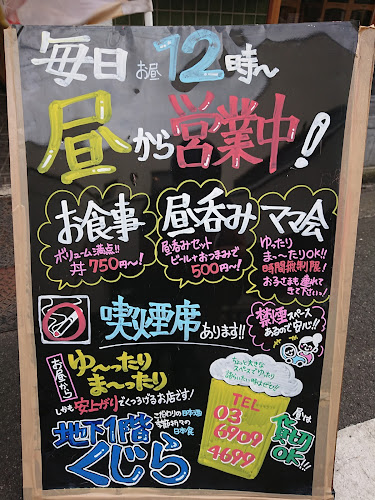 毎日お昼12時〜
昼から営業中!
お食事
ボリューム満点!!
丼750円〜!
昼呑み
昼呑みセット
ビール+おつまみで
500円〜!
ママ会
ゆったり
まったりOK!!
時間無制限!
お子さまも連れて
きて下さいっ!
喫煙席あります!!
禁煙スペース
あるので安心!!
お昼から
ゆ〜ったり
ま〜ったり
しかも安上がりでくつろげるお店です!
地下1階
くじら
こだわりの日本酒
日本食
ちょっと大きな
スペースでゆったり
TEL
03
6909
4699
昼は
貸切
OK!!